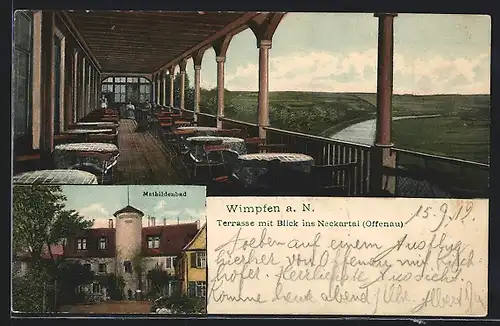 Mathildenbad
Wimpfen a. N.
Terrasse mit Blick ins Neckartal (Offenau)
15.9.19.
Soeben auf einem Ausflug
hierher von Offenau mit
Herrlichste Aussicht.
Komme heute abend Uhr. Albert